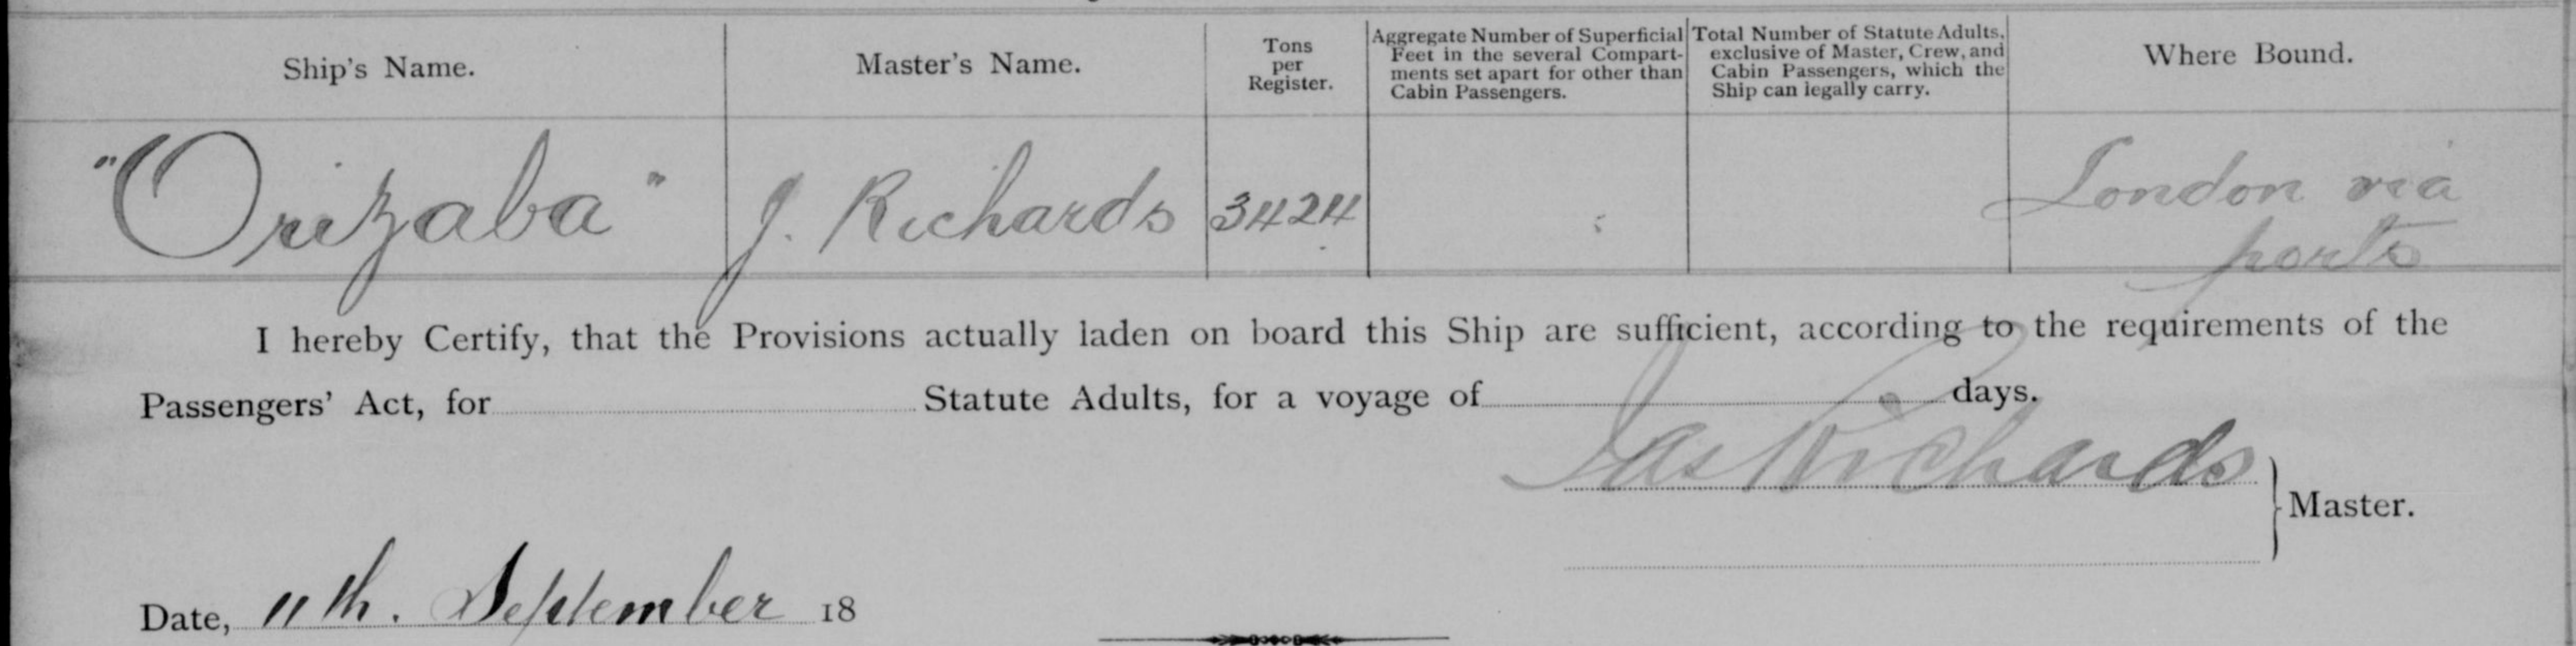 Ship's Name.
Master's Name.
Tons
per
Register.
Aggregate Number of Superficial
Feet in the several Compart-
ments set apart for other than
Cabin Passengers.
Total Number of Statute Adults,
exclusive of Master, Crew, and
Cabin Passengers, which the
Ship can legally carry.
Where Bound.
"Orizaba"
J. Richards
3424
London via
ports
I hereby Certify, that the Provisions actually laden on board this Ship are sufficient, according to the requirements of the
Passengers' Act, for Statute Adults, for a voyage of days.
Jas Richards
Master.
Date, 11th. September 18